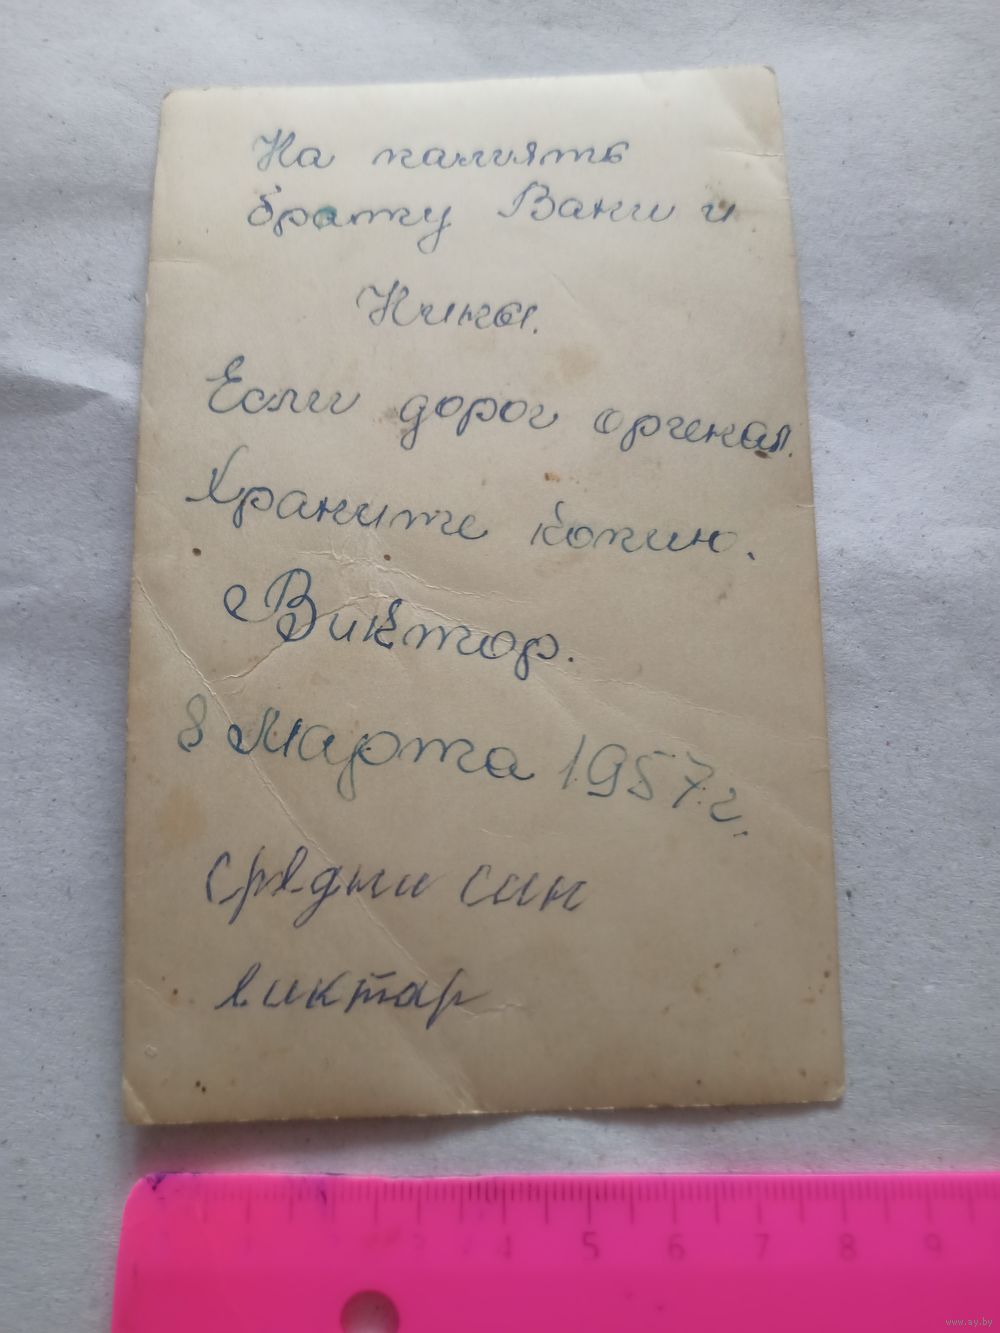 На память
брату Вани и
Нины.
Если дорог оргенал.
Храните копию.
Виктор.
8 Марта 1957 г.
средни син
виктар
3 4 5 6 7 8 9
www.ay.by